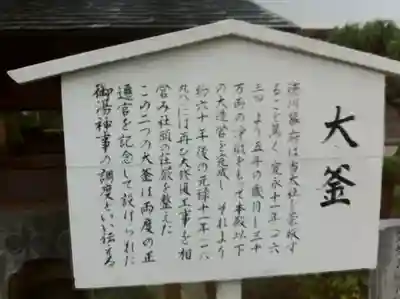 大釜
徳川幕府は当大社を崇敬す
ること篤く寛永十一年（一六
三四）より五年の歳月と三十
万両の浄財をもて本殿以下
の大造営を完成しそれより
約六十年後の元禄十一年（一六
九八）には再び大修復工事を相
営み社頭の壮厳を整えた
この二つの大釜は両度の正
遷宮を記念して設けられた
御湯神事の調度といい伝える